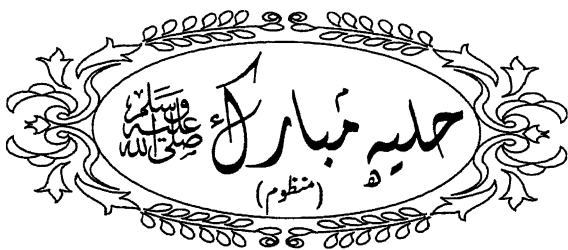 حلیہ مبارک ﷺ
(منظوم)